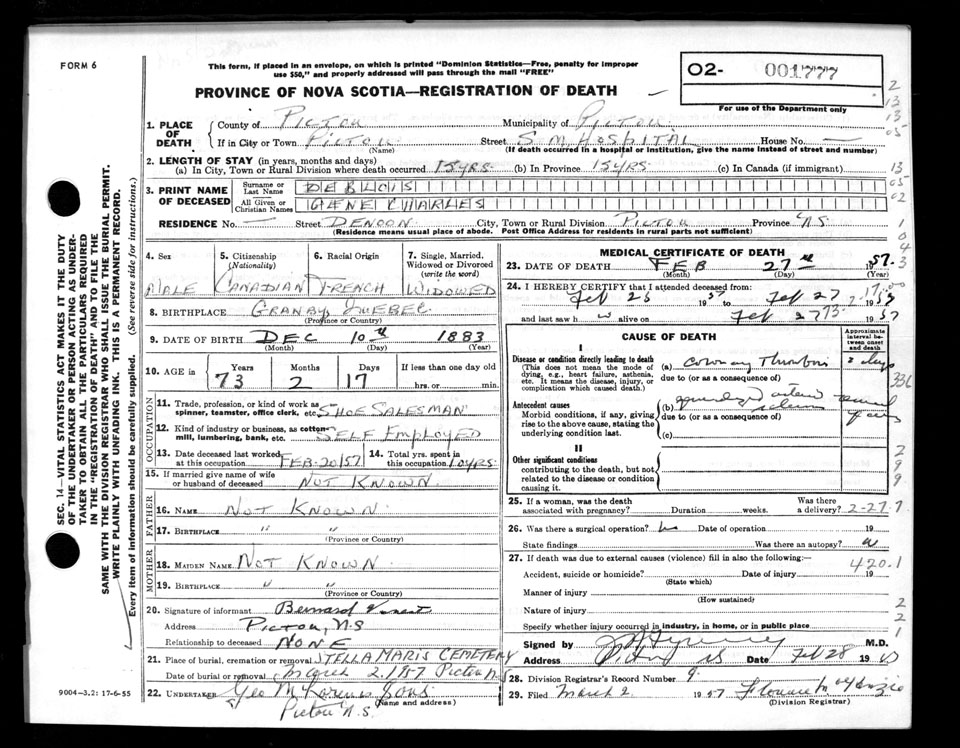 FORM 6
This form, if placed in an envelope, on which is printed "Dominion Statistics—Free, penalty for improper
use $50," and properly addressed will pass through the mail "FREE"
O2- 001777
For use of the Department only
PROVINCE OF NOVA SCOTIA—REGISTRATION OF DEATH
1. PLACE OF DEATH County of PICTOU Municipality of PICTOU
If in City or Town PICTOU (Name) Street S M HOSPITAL House No. —
(If death occurred in a hospital or institution, give the name instead of street and number)
2. LENGTH OF STAY (in years, months and days)
(a) In City, Town or Rural Division where death occurred 15 YRS. (b) In Province 15 YRS (c) In Canada (if immigrant)
3. PRINT NAME OF DECEASED Surname or Last Name DEBLOIS
All Given or Christian Names GENE CHARLES
RESIDENCE No. — Street DENOON City, Town or Rural Division PICTOU Province N.S
(Residence means usual place of abode. Post Office Address for residents in rural parts not sufficient)
4. Sex MALE
5. Citizenship (Nationality) CANADIAN
6. Racial Origin FRENCH
7. Single, Married, Widowed or Divorced (write the word) WIDOWED
8. BIRTHPLACE GRANBY QUEBEC.
(Province or Country)
9. DATE OF BIRTH DEC 10th 1883
(Month) (Day) (Year)
10. AGE in Years 73 Months 2 Days 17 If less than one day old
hrs. or min.
OCCUPATION
11. Trade, profession, or kind of work as
spinner, teamster, office clerk, etc. SHOE SALESMAN
12. Kind of industry or business, as cotton
mill, lumbering, bank, etc. SELF EMPLOYED
13. Date deceased last worked at this occupation FEB-20/57
14. Total yrs. spent in this occupation 10 YRS.
15. If married give name of wife
or husband of deceased NOT KNOWN.
FATHER
16. NAME NOT KNOWN
17. BIRTHPLACE " "
(Province or Country)
MOTHER
18. MAIDEN NAME NOT KNOWN
19. BIRTHPLACE " "
(Province or Country)
20. Signature of informant Bernard
Address PICTOU, N.S
Relationship to deceased NONE
21. Place of burial, cremation or removal STELLA MARIS CEMETERY
Date of burial or removal March 2/1957 Pictou N.S
22. UNDERTAKER Geo M Sons
(Name and address)
Pictou N.S.
MEDICAL CERTIFICATE OF DEATH
23. DATE OF DEATH FEB 27th 1957.
(Month) (Day) (Year)
24. I HEREBY CERTIFY that I attended deceased from:
Feb 25 1957 to Feb 27 1957
and last saw h alive on Feb 27 1957
CAUSE OF DEATH
Approximate interval between onset and death
I
Disease or condition directly leading to death
(This does not mean the mode of dying, e.g., heart failure, asthenia, etc. It means the disease, injury, or complication which caused death.)
(a) Coronary Thrombosis 2 days
due to (or as a consequence of)
Antecedent causes
Morbid conditions, if any, giving rise to the above cause, stating the underlying condition last.
(b) generalized arterio sclerosis several years
due to (or as a consequence of)
(c)
II
Other significant conditions
contributing to the death, but not related to the disease or condition causing it.
25. If a woman, was the death associated with pregnancy? Duration weeks. Was there a delivery?
2-27.7
26. Was there a surgical operation? no Date of operation 19
State findings Was there an autopsy?
27. If death was due to external causes (violence) fill in also the following:—
420.1
Accident, suicide or homicide? Date of injury 19
(State which)
Manner of injury
(How sustained)
Nature of injury
Specify whether injury occurred in industry, in home, or in public place
Signed by M.D.
Address Date Feb 28 19
28. Division Registrar's Record Number 9.
29. Filed March 2 1957
(Division Registrar)
SEC. 14—VITAL STATISTICS ACT MAKES IT THE DUTY
OF THE UNDERTAKER OR PERSON ACTING AS UNDER-
TAKER TO OBTAIN ALL THE PARTICULARS REQUIRED
IN THE "REGISTRATION OF DEATH" AND TO FILE THE
SAME WITH THE DIVISION REGISTRAR WHO SHALL ISSUE THE BURIAL PERMIT.
WRITE PLAINLY WITH UNFADING INK. THIS IS A PERMANENT RECORD.
Every item of information should be carefully supplied. (See reverse side for instructions.)
9004—3.2: 17-6-55